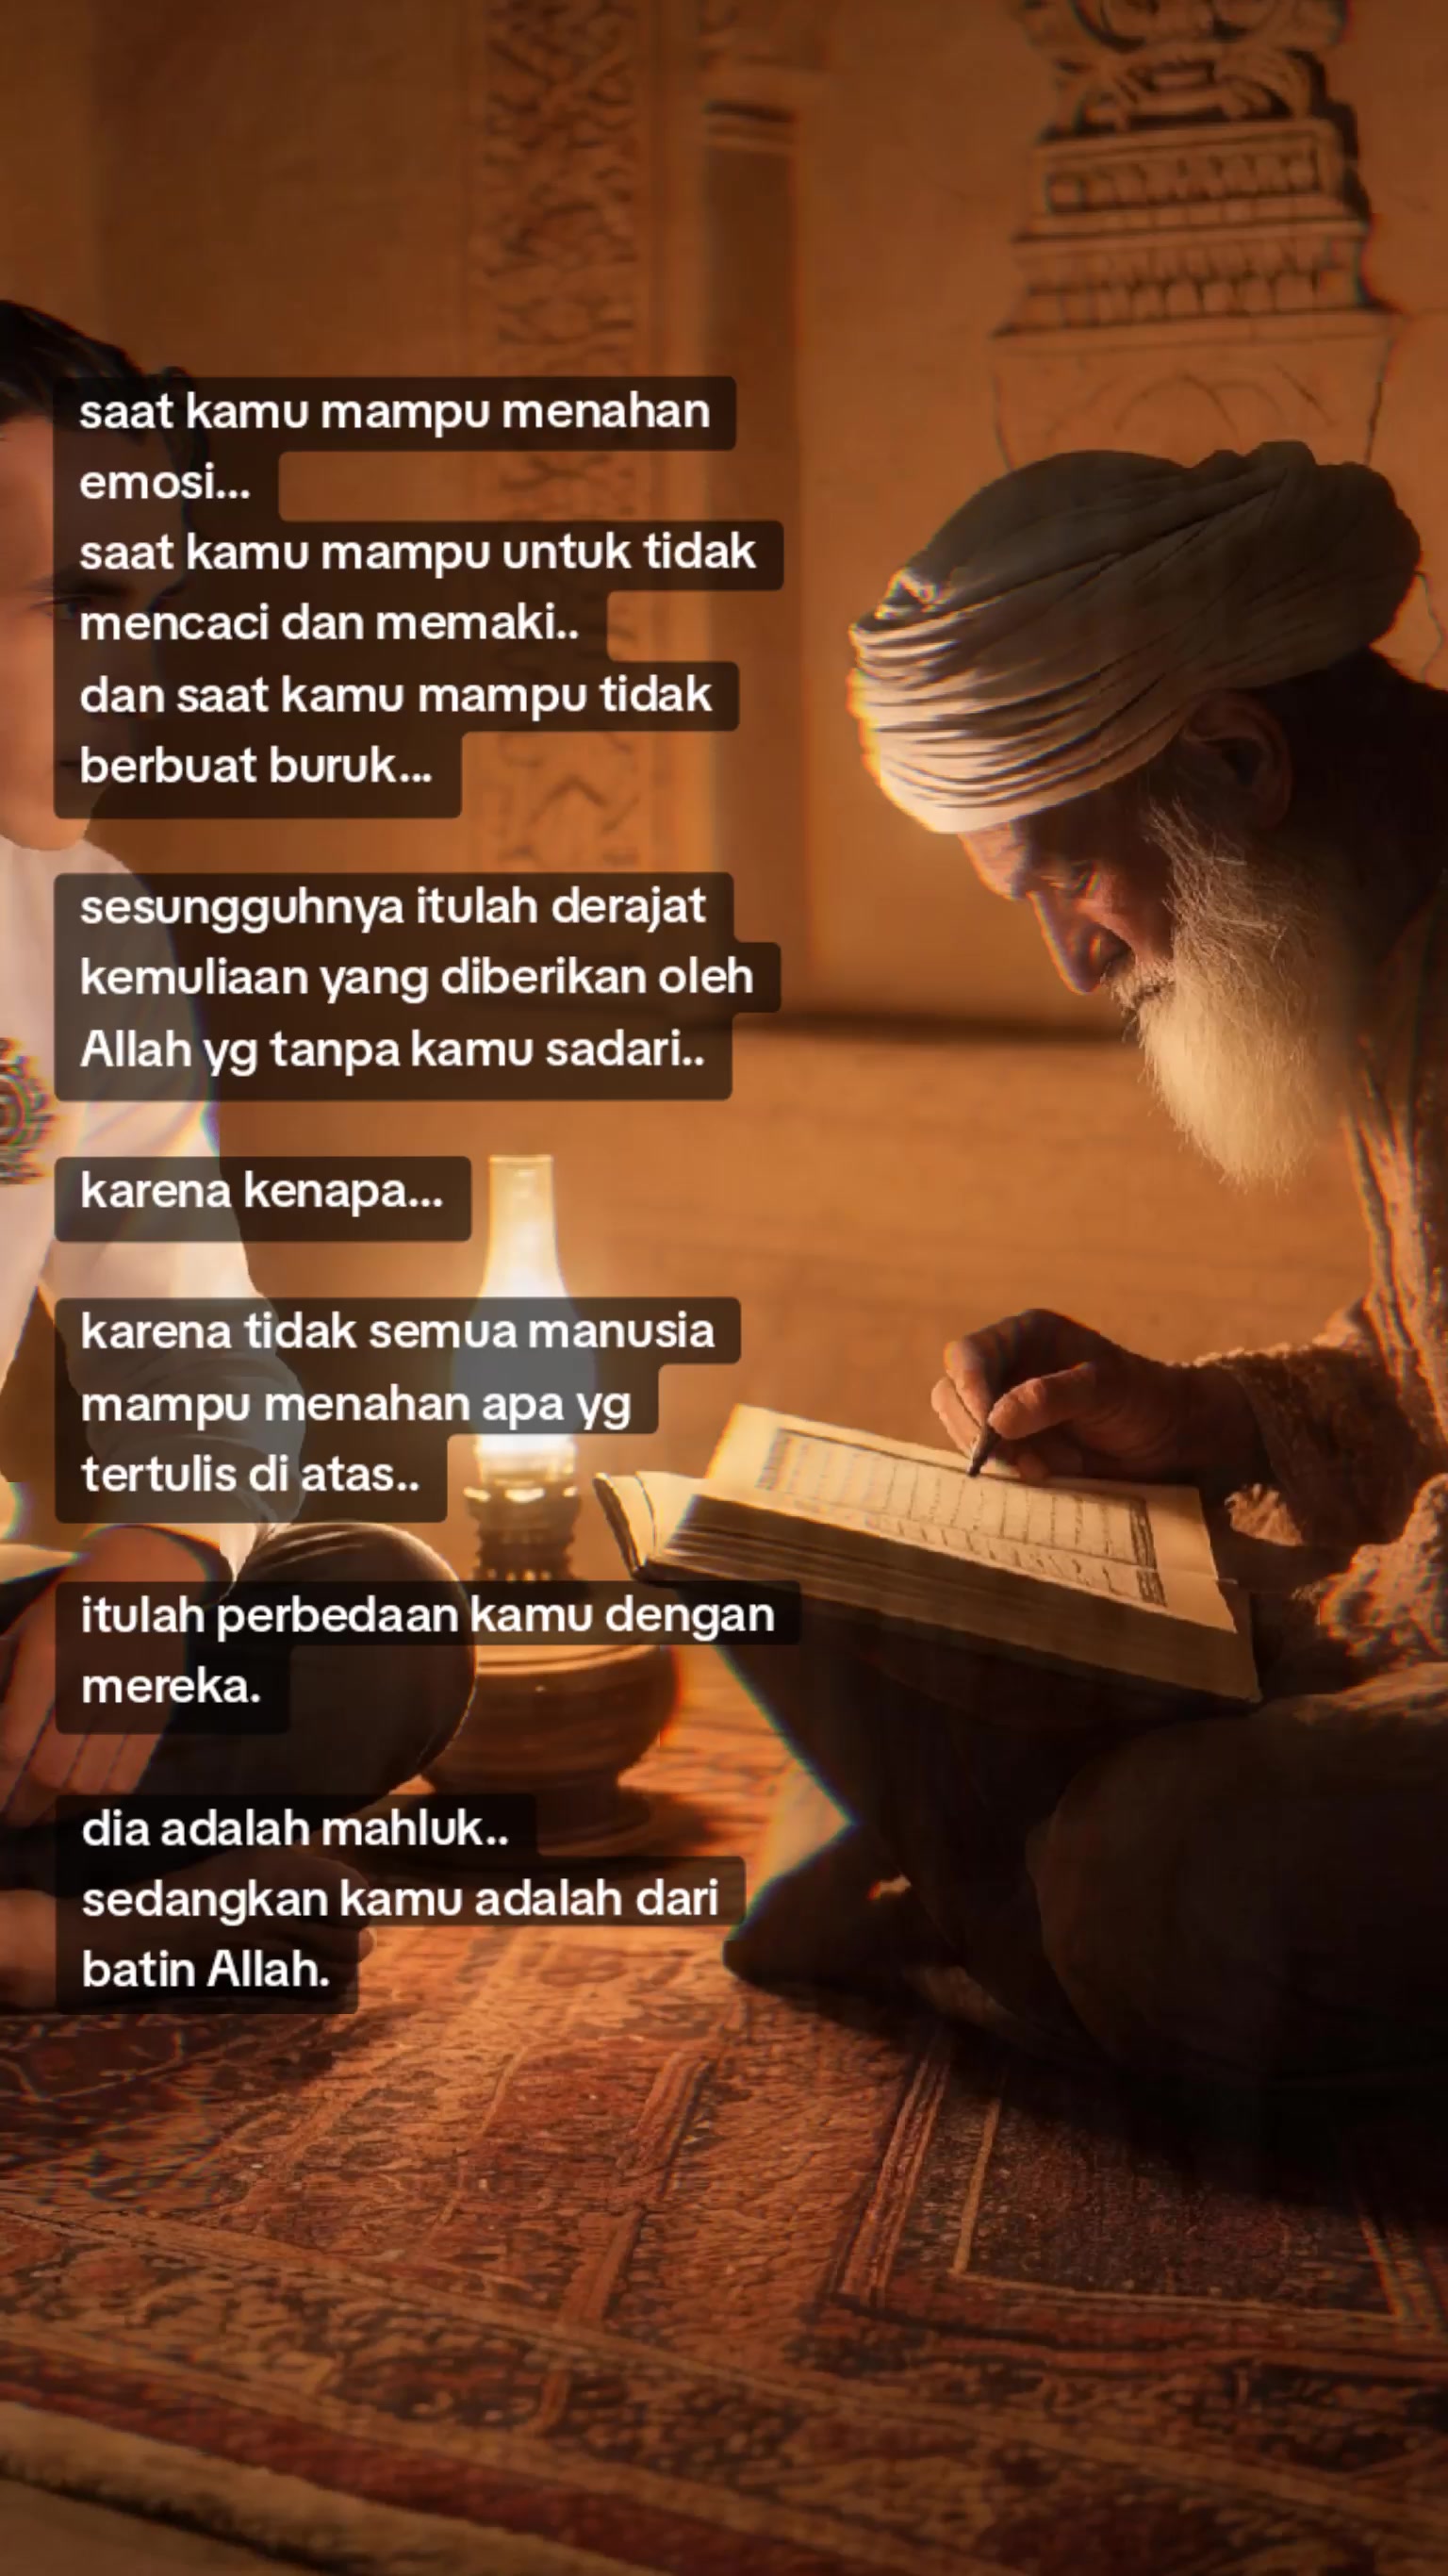 saat kamu mampu menahan
emosi...
saat kamu mampu untuk tidak
mencaci dan memaki..
dan saat kamu mampu tidak
berbuat buruk...
sesungguhnya itulah derajat
kemuliaan yang diberikan oleh
Allah yg tanpa kamu sadari..
karena kenapa...
karena tidak semua manusia
mampu menahan apa yg
tertulis di atas..
itulah perbedaan kamu dengan
mereka.
dia adalah mahluk..
sedangkan kamu adalah dari
batin Allah.